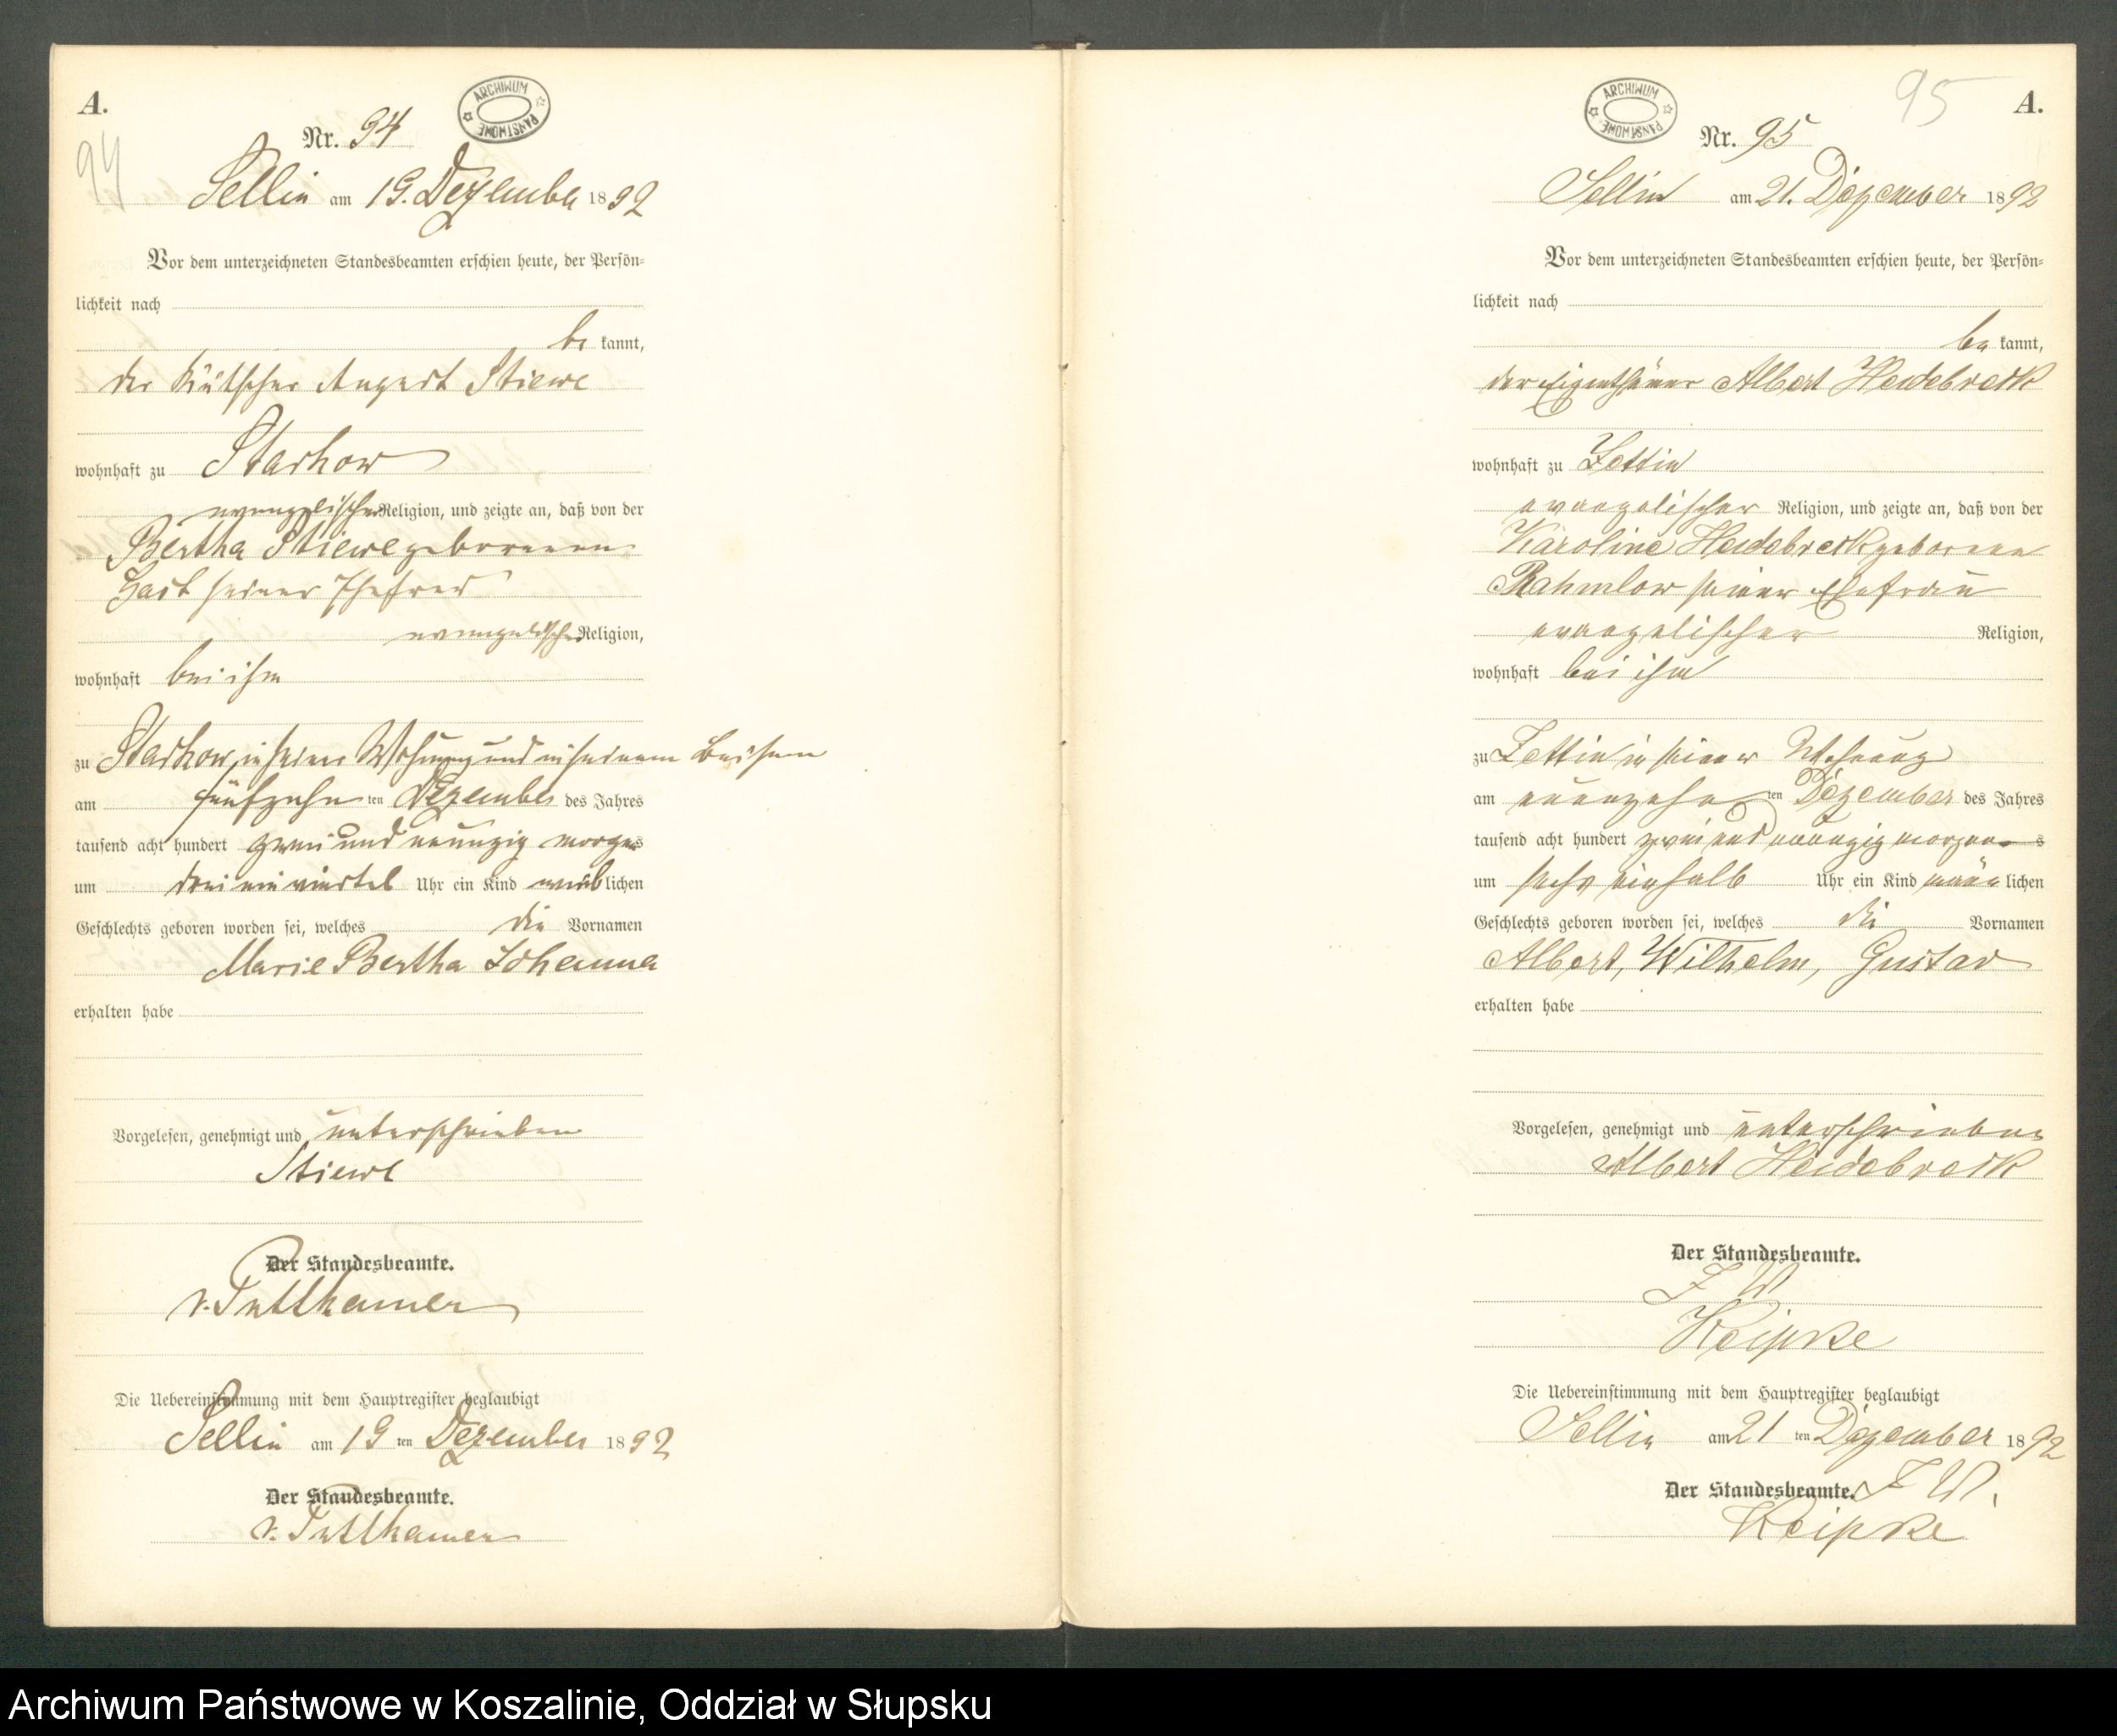 A.
ARCHIWUM PAŃSTWOWE
94
Nr. 94
Sellin am 19. Dezember 1892
Vor dem unterzeichneten Standesbeamten erschien heute, der Persön=
lichkeit nach
be kannt,
der Kutscher August Stiewe
wohnhaft zu Starkow
evangelischer Religion, und zeigte an, daß von der
Bertha Stiewe geborenen
seiner Ehefrau
evangelischer Religion,
wohnhaft bei ihm
zu Starkow, in seiner Wohnung und in seinem Beisein
am fünfzehn ten Dezember des Jahres
tausend acht hundert zwei und neunzig morgens
um drei ein viertel Uhr ein Kind weiblichen
Geschlechts geboren worden sei, welches die Vornamen
Marie Bertha Johanna
erhalten habe
Vorgelesen, genehmigt und unterschrieben
Stiewe
Der Standesbeamte.
v. Puttkamer
Die Uebereinstimmung mit dem Hauptregister beglaubigt
Sellin am 19 ten Dezember 1892
Der Standesbeamte.
v. Puttkamer
95
A.
ARCHIWUM PAŃSTWOWE
Nr. 95
Sellin am 21. Dezember 1892
Vor dem unterzeichneten Standesbeamten erschien heute, der Persön=
lichkeit nach
be kannt,
der Eigenthümer Albert Heidebreck
wohnhaft zu Zettin
evangelischer Religion, und zeigte an, daß von der
Karoline Heidebreck geborene
Rahmlow seiner Ehefrau
evangelischer Religion,
wohnhaft bei ihm
zu Zettin in seiner Wohnung
am neunzehn ten Dezember des Jahres
tausend acht hundert zwei und neunzig morgens
um sechs einhalb Uhr ein Kind männlichen
Geschlechts geboren worden sei, welches die Vornamen
Albert, Wilhelm, Gustav
erhalten habe
Vorgelesen, genehmigt und unterschrieben
Albert Heidebreck
Der Standesbeamte.
I W
Keipke
Die Uebereinstimmung mit dem Hauptregister beglaubigt
Sellin am 21 ten Dezember 1892
Der Standesbeamte. I W.
Keipke
Archiwum Państwowe w Koszalinie, Oddział w Słupsku